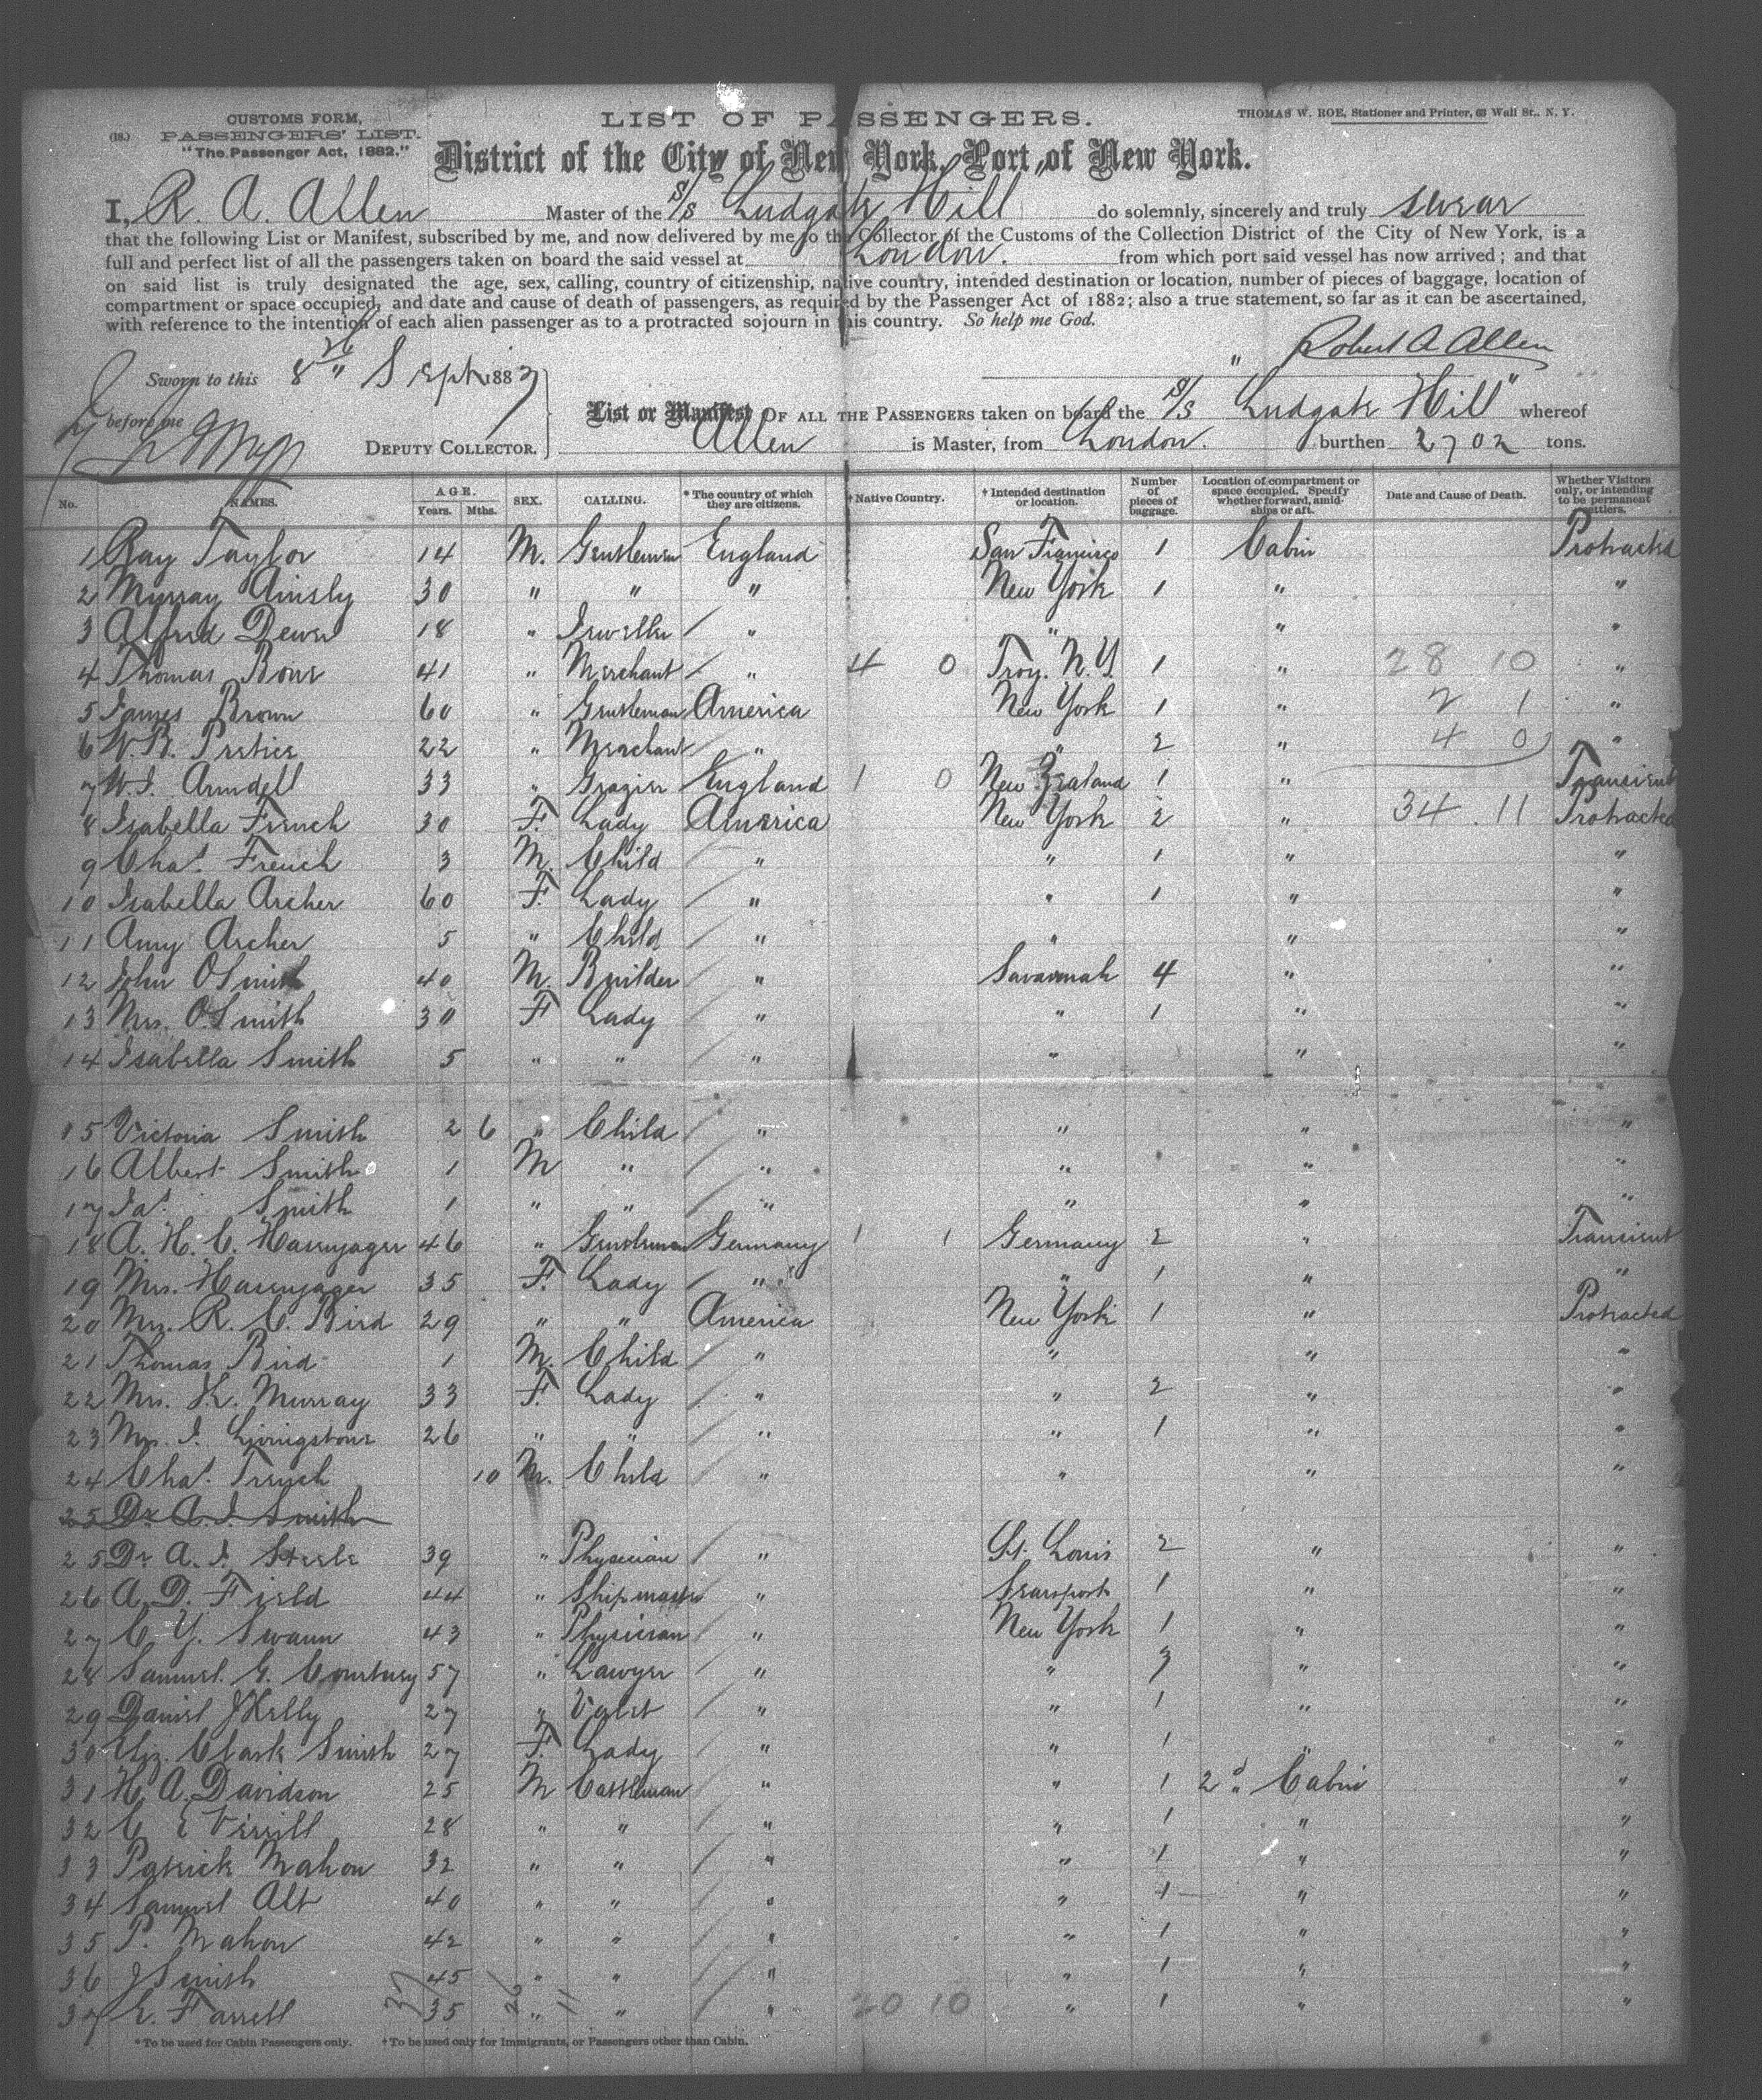 CUSTOMS FORM,
(18.) PASSENGERS' LIST.
"The Passenger Act, 1882."
LIST OF PASSENGERS.
THOMAS W. ROE, Stationer and Printer, 63 Wall St., N. Y.
District of the City of New York, Port of New York.
I, R. A. Allen Master of the S/S Ludgate Hill" do solemnly, sincerely and truly swear
that the following List or Manifest, subscribed by me, and now delivered by me to the Collector of the Customs of the Collection District of the City of New York, is a
full and perfect list of all the passengers taken on board the said vessel at London. from which port said vessel has now arrived; and that
on said list is truly designated the age, sex, calling, country of citizenship, native country, intended destination or location, number of pieces of baggage, location of
compartment or space occupied, and date and cause of death of passengers, as required by the Passenger Act of 1882; also a true statement, so far as it can be ascertained,
with reference to the intention of each alien passenger as to a protracted sojourn in this country. So help me God.
Robert A Allen
Sworn to this 8th Sept 1887
before me
DEPUTY COLLECTOR.
List or Manifest OF ALL THE PASSENGERS taken on board the S/S "Ludgate Hill" whereof
Allen is Master, from London. burthen 2702 tons.
No. NAMES. AGE. Years. Mths. SEX. CALLING. * The country of which they are citizens. † Native Country. † Intended destination or location. Number of pieces of baggage. Location of compartment or space occupied. Specify whether forward, amidships or aft. Date and Cause of Death. Whether Visitors only, or intending to be permanent settlers.
1 Ray Taylor 14 M. Gentleman England San Francisco 1 Cabin Protracted
2 Murray Ainsly 30 " " " New York 1 " "
3 Alfred Dewer 18 " Jeweller " " " "
4 Thomas Bone 41 " Merchant " 4 0 Troy. N.Y. 1 " 28 10 "
5 James Brown 60 " Gentleman America New York 1 " 2 1 "
6 22 " Merchant " " 2 " 4 0 "
7 W. J. Arundell 33 " Grazier England 1 0 New Zealand 1 " Transient
8 Isabella French 30 F. Lady America New York 2 " 34.11 Protracted
9 Chas. French 3 M. Child " " 1 " "
10 Isabella Archer 60 F. Lady " " 1 " "
11 Amy Archer 5 " Child " " " "
12 John O Smith 40 M. Builder " Savannah 4 " "
13 Mrs. O. Smith 30 F Lady " " 1 " "
14 Isabella Smith 5 " " " " " "
15 Victoria Smith 2 6 " Child " " " "
16 Albert Smith 1 M " " " " "
17 Jas. Smith 1 " " " " " "
18 A. H. C. Hasenjager 46 " Gentleman Germany 1 1 Germany 2 " Transient
19 Mrs. Hasenjager 35 F. Lady " " 1 " "
20 Mrs. R. C. Bird 29 " " America New York 1 " Protracted
21 Thomas Bird 1 M. Child " " " "
22 Mrs. K. Murray 33 F. Lady " " 2 " "
23 Mrs. J. Livingstone 26 " " " " 1 " "
24 Chas. French 10 M. Child " " " "
25 Dr A. J. Smith
25 Dr A. J. Steele 39 " Physician " St. Louis 2 " "
26 A. D. Field 44 " Shipmaster " Searsport 1 " "
27 C. Y. Swann 43 " Physician " New York 1 " "
28 Samuel. G. Courtney 57 " Lawyer " " 3 " "
29 Daniel J Kelly 27 " Valet " " 1 " "
30 Eliz. Clark Smith 27 F. Lady " " 1 " "
31 H. A. Davidson 25 M Cattleman " " 1 2d Cabin "
32 C E Verrill 28 " " " " 1 " "
33 Patrick Mahon 32 " " " " 1 " "
34 Samuel Alt 40 " " " " 1 " "
35 P. Mahon 42 " " " " 1 " "
36 J Smith 45 " " " " 1 " "
37 E. Farrell 37 35 26 " 11 " " 20 10 " 1 " "
* To be used for Cabin Passengers only. † To be used only for Immigrants, or Passengers other than Cabin.